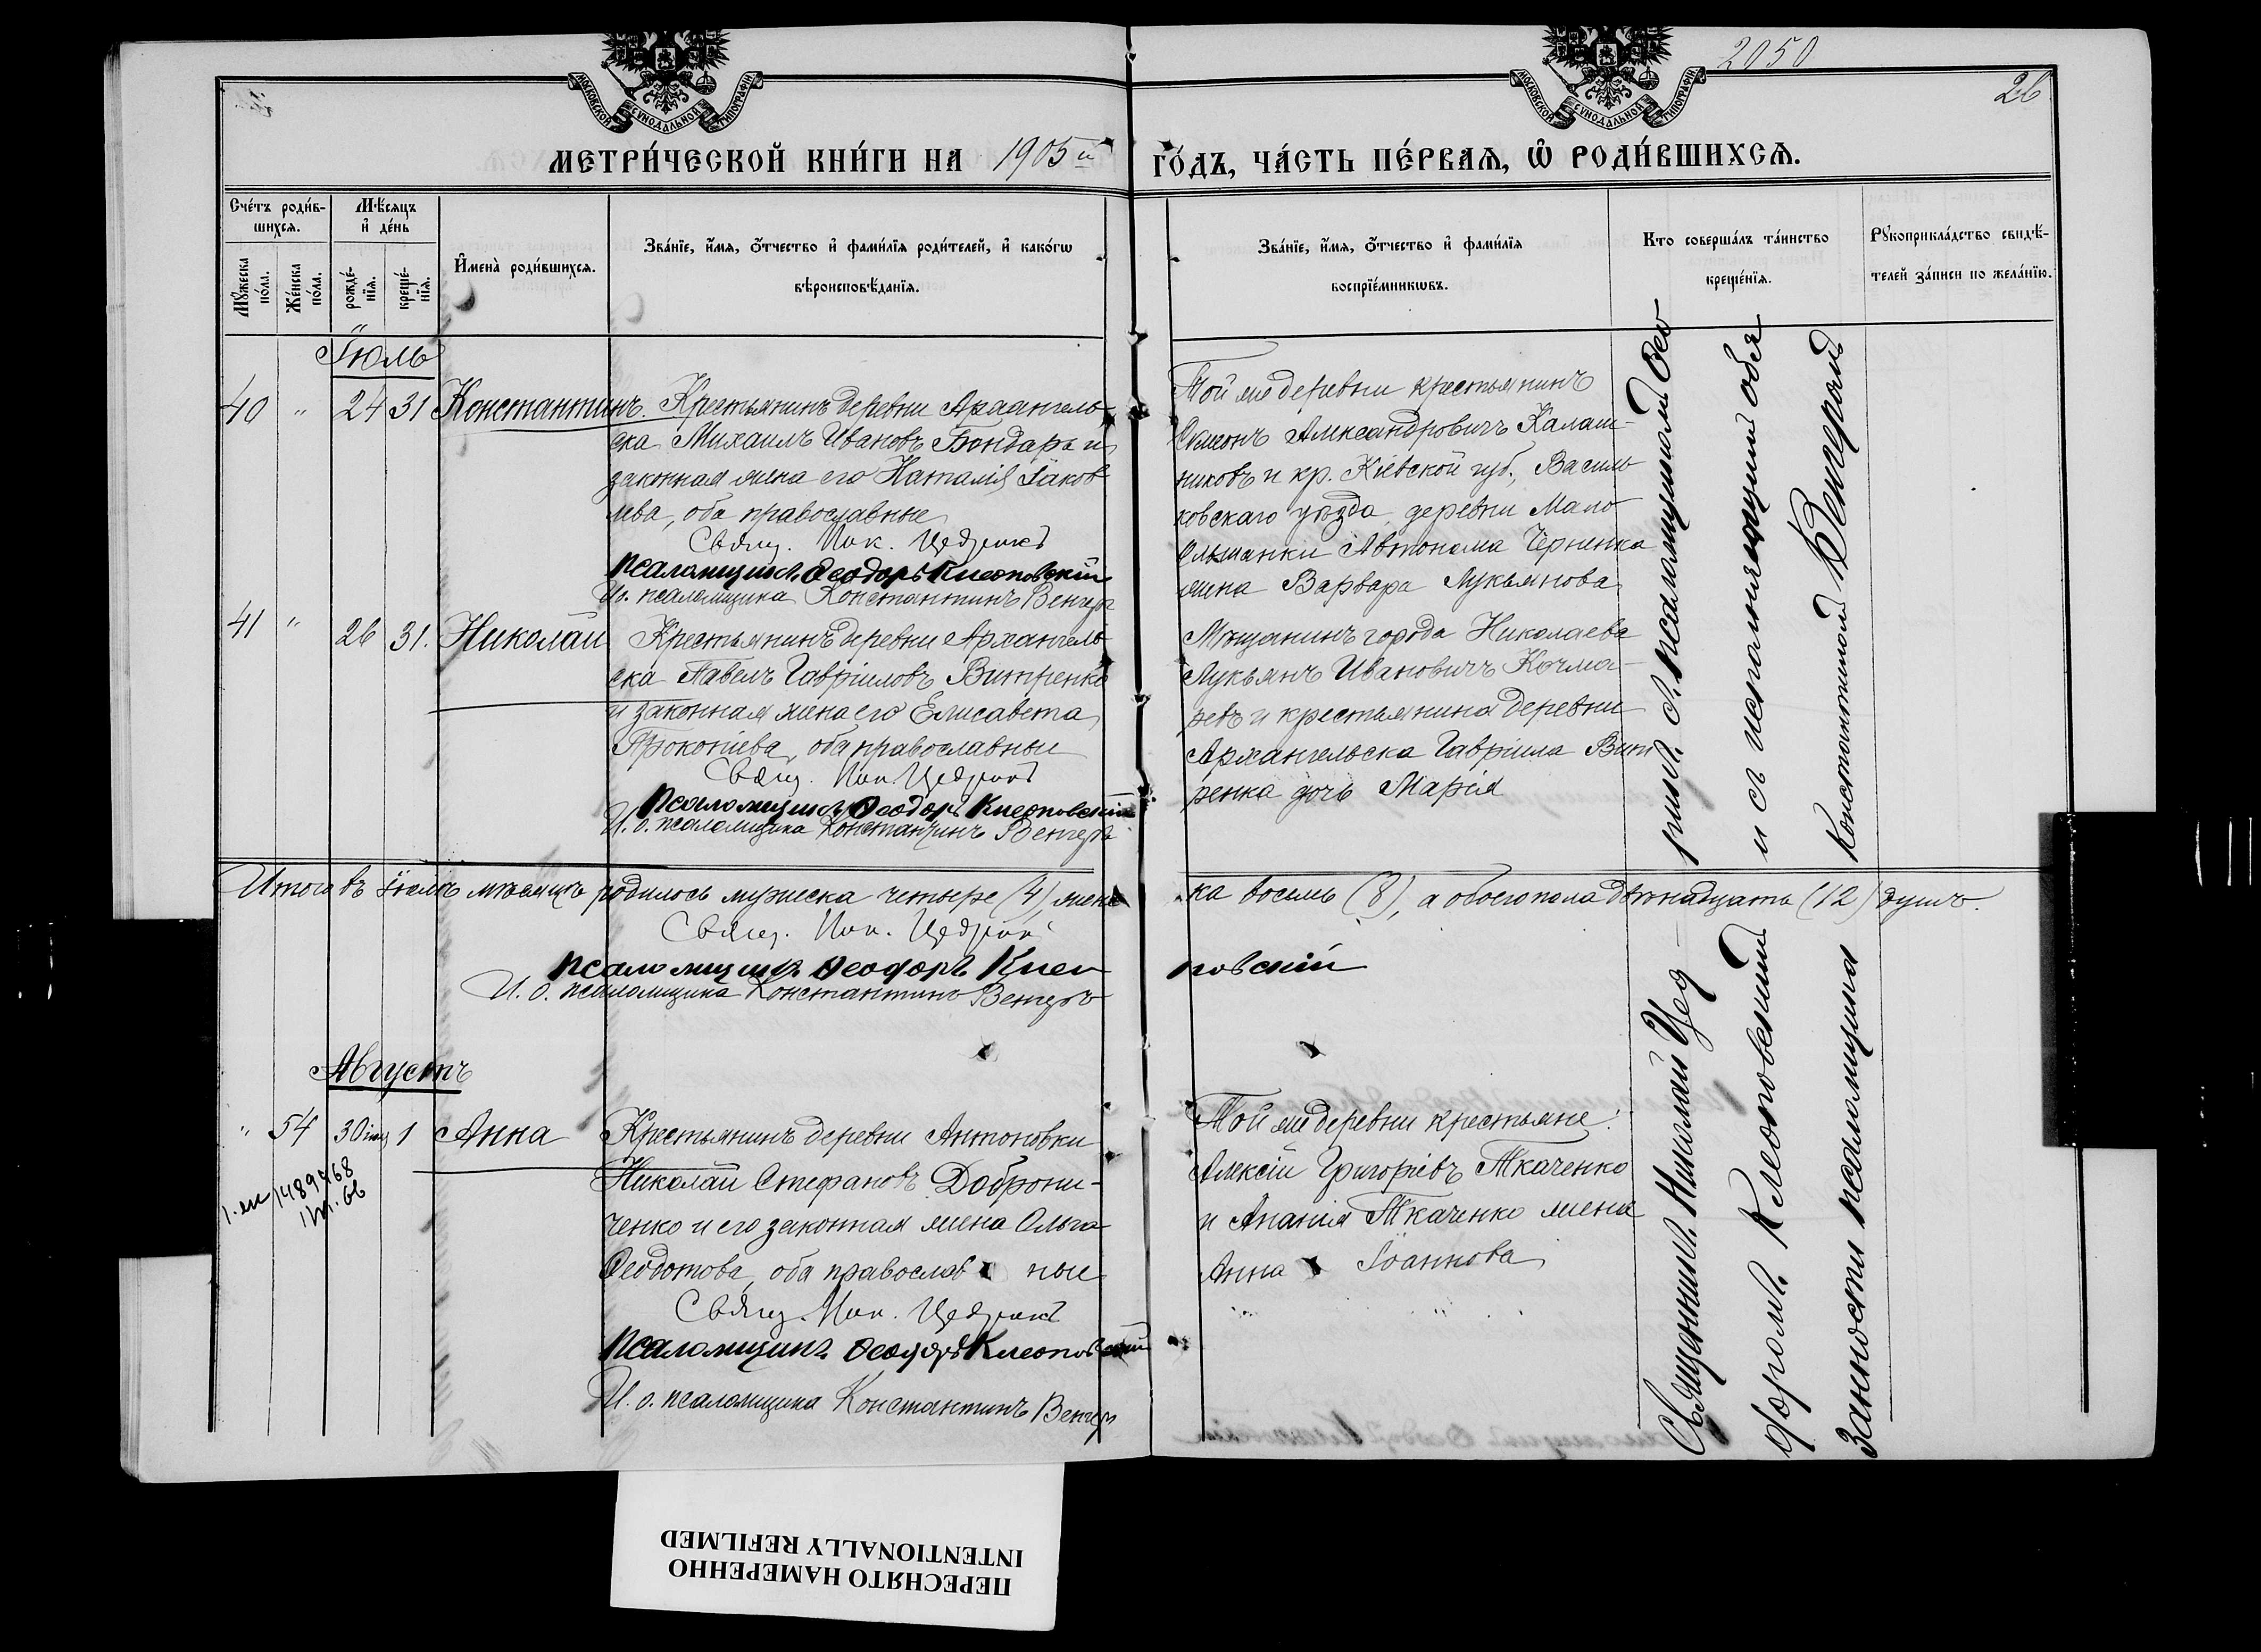 2050
26
МОСКОВСКОЙ СУНОДАЛЬНОЙ ТИПОГРАФІИ
МОСКОВСКОЙ СУНОДАЛЬНОЙ ТИПОГРАФІИ
МЕТРИ́ЧЕСКОЙ КНИ́ГИ НА 1905й ГО́ДЪ, ЧА́СТЬ ПЕ́РВАѦ, Ѡ҆ РОДИ́ВШИХСѦ.
Сче́тъ роди́в-
шихсѧ.
Мꙋ́жеска по́ла.
Же́нска по́ла.
Мѣ́сѧцъ
и҆ де́нь
рожде́-
нїѧ.
креще́-
нїѧ.
И҆мена̀ роди́вшихсѧ.
Зва́нїе, и҆́мѧ, ѻ҆́тчество и҆ фами́лїѧ роди́телей, и҆ како́гѡ
вѣроисповѣ́данїѧ.
Зва́нїе, и҆́мѧ, ѻ҆́тчество и҆ фами́лїѧ
воспрїе́мникѡвъ.
Кто̀ соверша́лъ та́инство
креще́нїѧ.
Рꙋкоприкла́дство свидѣ́-
телей за́писи по жела́нїю.
Іюль
40 " 24 31 Константинъ. Крестьянинъ деревни Архангель-
ска Михаилъ Ивановъ Бондарь и
законная жена его Наталія Іаков
лева, оба православные
Свящ. Ник. Цедрикъ
Псаломщикъ Ѳеодоръ Клеоповскій
И.о. псаломщика Константинъ Венгеръ
Той же деревни крестьянинъ
Симеонъ Александровичъ Калаш-
никовъ и кр. Кіевской губ., Василь
ковскаго уѣзда деревни Мало
Ольшанки Автонома Чернинка
жена Варвара Лукьянова
41 " 26 31. Николай Крестьянинъ деревни Архангель
ска Павелъ Гавріиловъ Витренко
и законная жена его Елисавета
Прокопіева, оба православные
Свящ. Ник. Цедрикъ
Псаломщикъ Ѳеодоръ Клеоповскій
И.о. псаломщика Константинъ Венгеръ
Мѣщанинъ города Николаева
Лукьянъ Ивановичъ Кочма-
ревъ и крестьянина деревни
Архангельска Гавріила Вит
ренка дочь Марія
Итого въ іюлѣ мѣсяцѣ родилось мужеска четыре (4), женс
ка восемь (8), а обоего пола двѣнадцать (12) душъ.
Свящ. Ник. Цедрикъ
Псаломщикъ Ѳеодоръ Клео
повскій
И.о. псаломщика Константинъ Венгеръ
Августъ
" 54 30 іюл 1 Анна Крестьянинъ деревни Антоновки
Николай Стефановъ Доброни-
ченко и его законная жена Ольга
Ѳеодотова, оба православ ные
Свящ. Ник. Цедрикъ
Псаломщикъ Ѳеодоръ Клеоповскій
И.о. псаломщика Константинъ Венгеръ
Той же деревни крестьяне:
Алексій Григоріевъ Ткаченко
и Ананія Ткаченко жена
Анна Іоаннова
Священникъ Николай Цед-
рикъ съ псаломщикомъ Ѳео
форомъ Клеоповскимъ
и съ исполняющимъ обя
занности псаломщика
Константиномъ Венгеромъ
ПЕРЕСНЯТО НАМЕРЕННО
INTENTIONALLY REFILMED